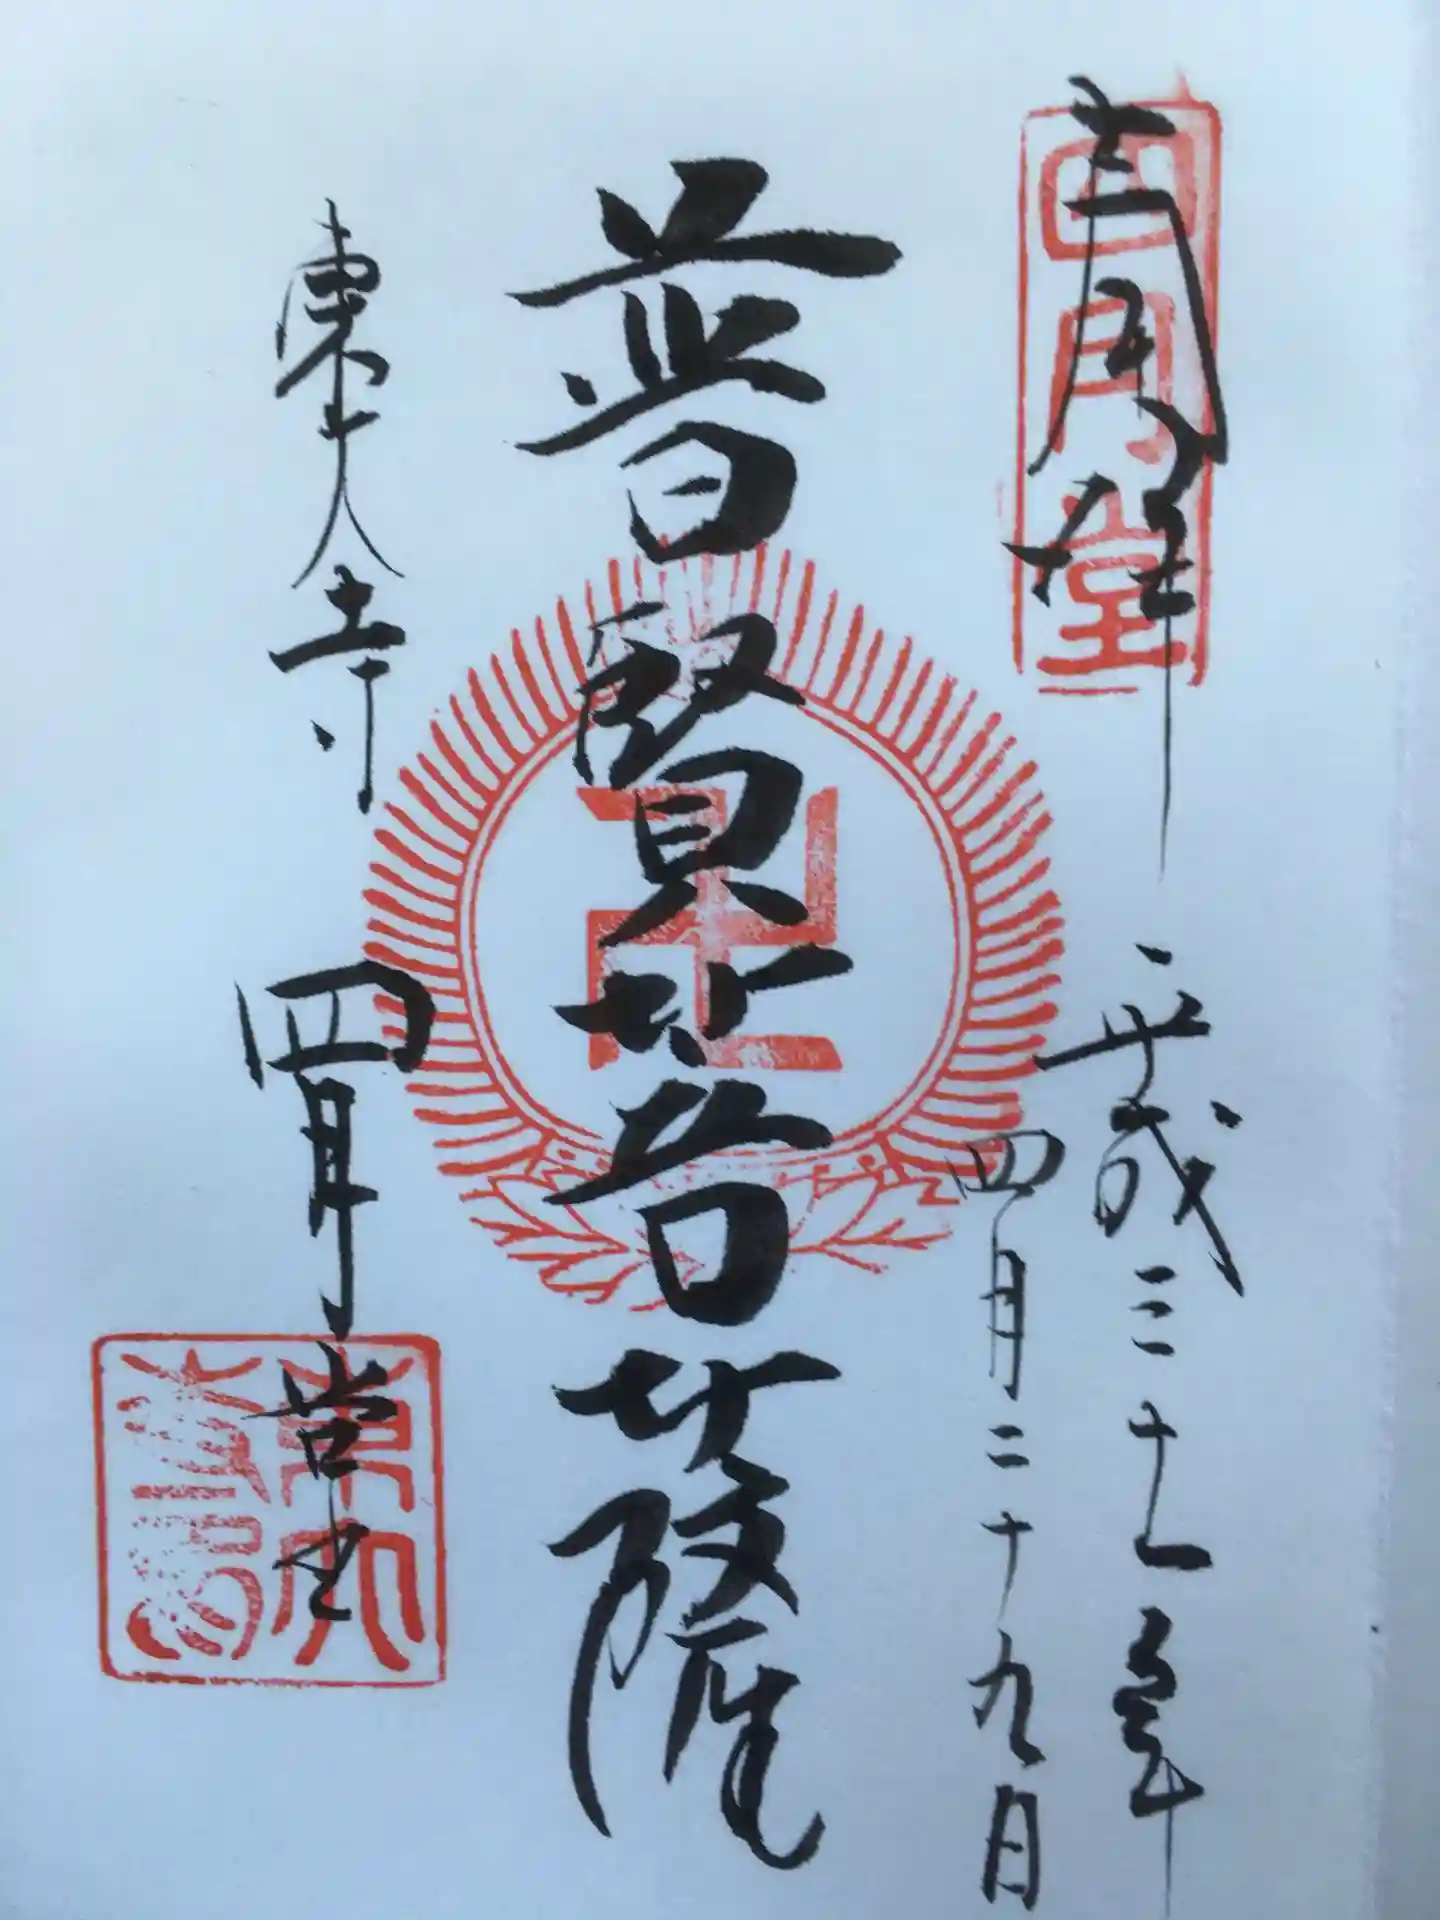 奉拝
平成三十一年
四月二十九日
四月堂
普賢菩薩
東大寺
四月堂